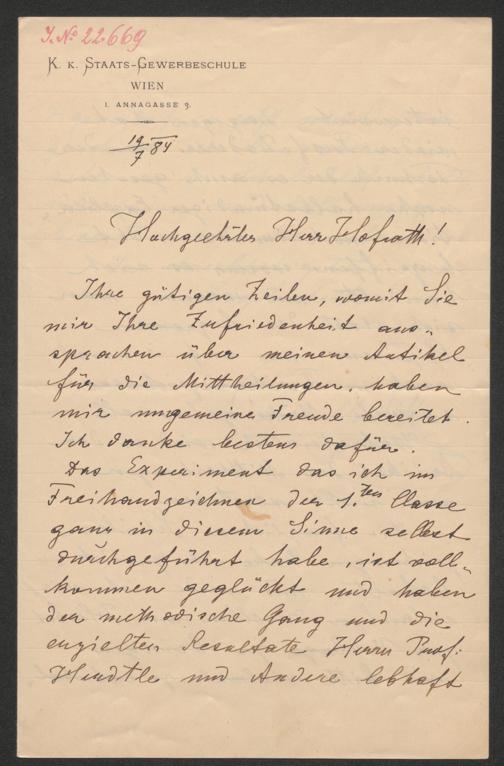 J. No 22669
K. K. STAATS-GEWERBESCHULE
WIEN
I. ANNAGASSE 3.
19/7 84
Hochgeehrter Herr Hofrath!
Ihre gütigen Zeilen, womit Sie
mir Ihre Zufriedenheit aus-
sprachen über meinen Artikel
für die Mittheilungen, haben
mir ungemeine Freude bereitet.
Ich danke bestens dafür.
Das Experiment das ich im
Freihandzeichnen der 1.ten Classe
ganz in diesem Sinne selbst
durchgeführt habe, ist voll-
kommen geglückt und haben
der methodische Gang und die
erzielten Resultate Herrn Prof:
Herdtle und Andere lebhaft